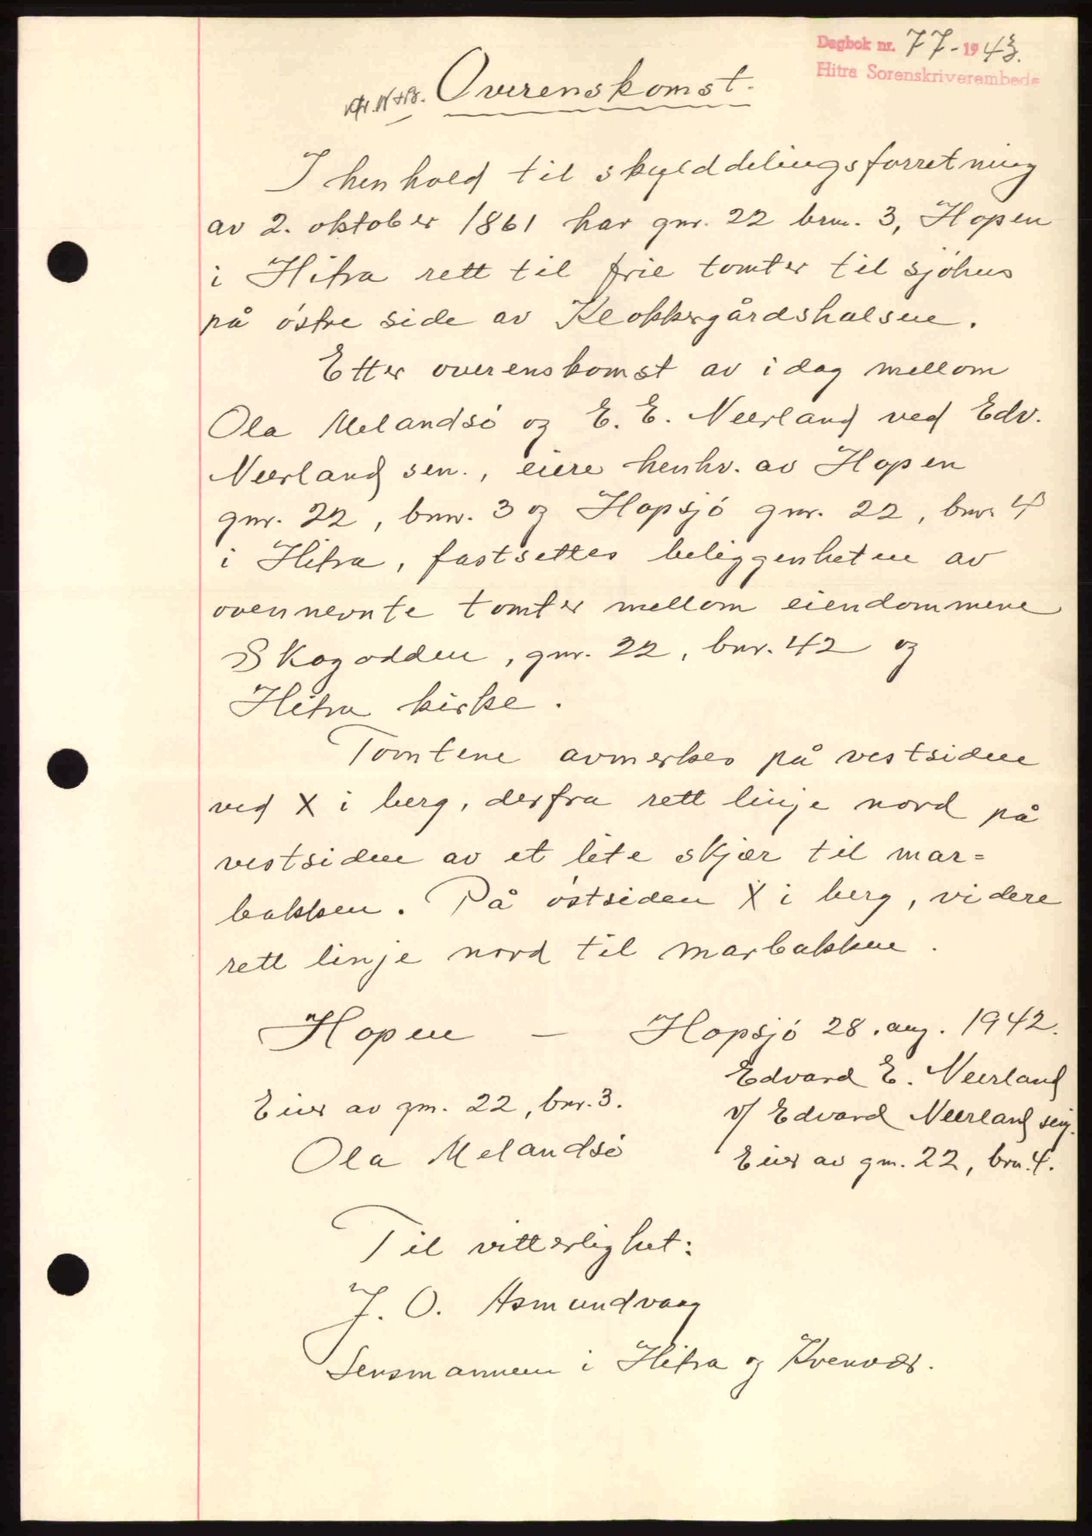 Dagbok nr. 77-1943.
Hitra Sorenskriverembede
Overenskomst.
I henhold til skylddelingsforretning
av 2. oktober 1861 har gnr. 22 brn. 3, Hopen
i Hitra rett til frie tomter til sjøhus
på østre side av Klokkergårdshalsen.
Etter overenskomst av idag mellom
Ola Melandsø og E. E. Neerland ved Edv.
Neerland sen., eiere henhv. av Hopen
gnr. 22, bnr. 3 og Hopsjø gnr. 22, bnr. 4
i Hitra, fastsettes beliggenheten av
ovennevnte tomter mellom eiendommene
Skogodden, gnr. 22, bnr. 42 og
Hitra kirke.
Tomtene avmerkes på vestsiden
ved X i berg, derfra rett linje nord på
vestsiden av et lite skjær til mar=
bakken. På østsiden X i berg, videre
rett linje nord til marbakken.
Hopen — Hopsjø 28. aug. 1942.
Edvard E. Neerland
Eier av gnr. 22, bnr. 3.
v/ Edvard Neerland sen.
Ola Melandsø
Eier av gnr. 22, brn. 4.
Til vitterlighet:
J. O. Asmundvaag
Lensmannen i Hitra og Kvenvær.